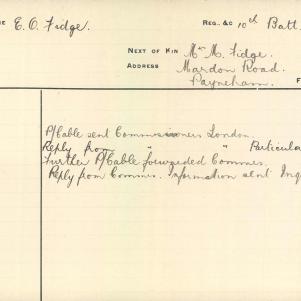 E. O. Fidge. REG., &C 10th Batt.
NEXT OF KIN Mr M. Fidge.
ADDRESS Mardon Road.
Payneham.
P/Cable sent Commissioners London.
Reply from " " Particula
Further P/Cable forwarded Commrs.
Reply from Commrs. Information sent Inq